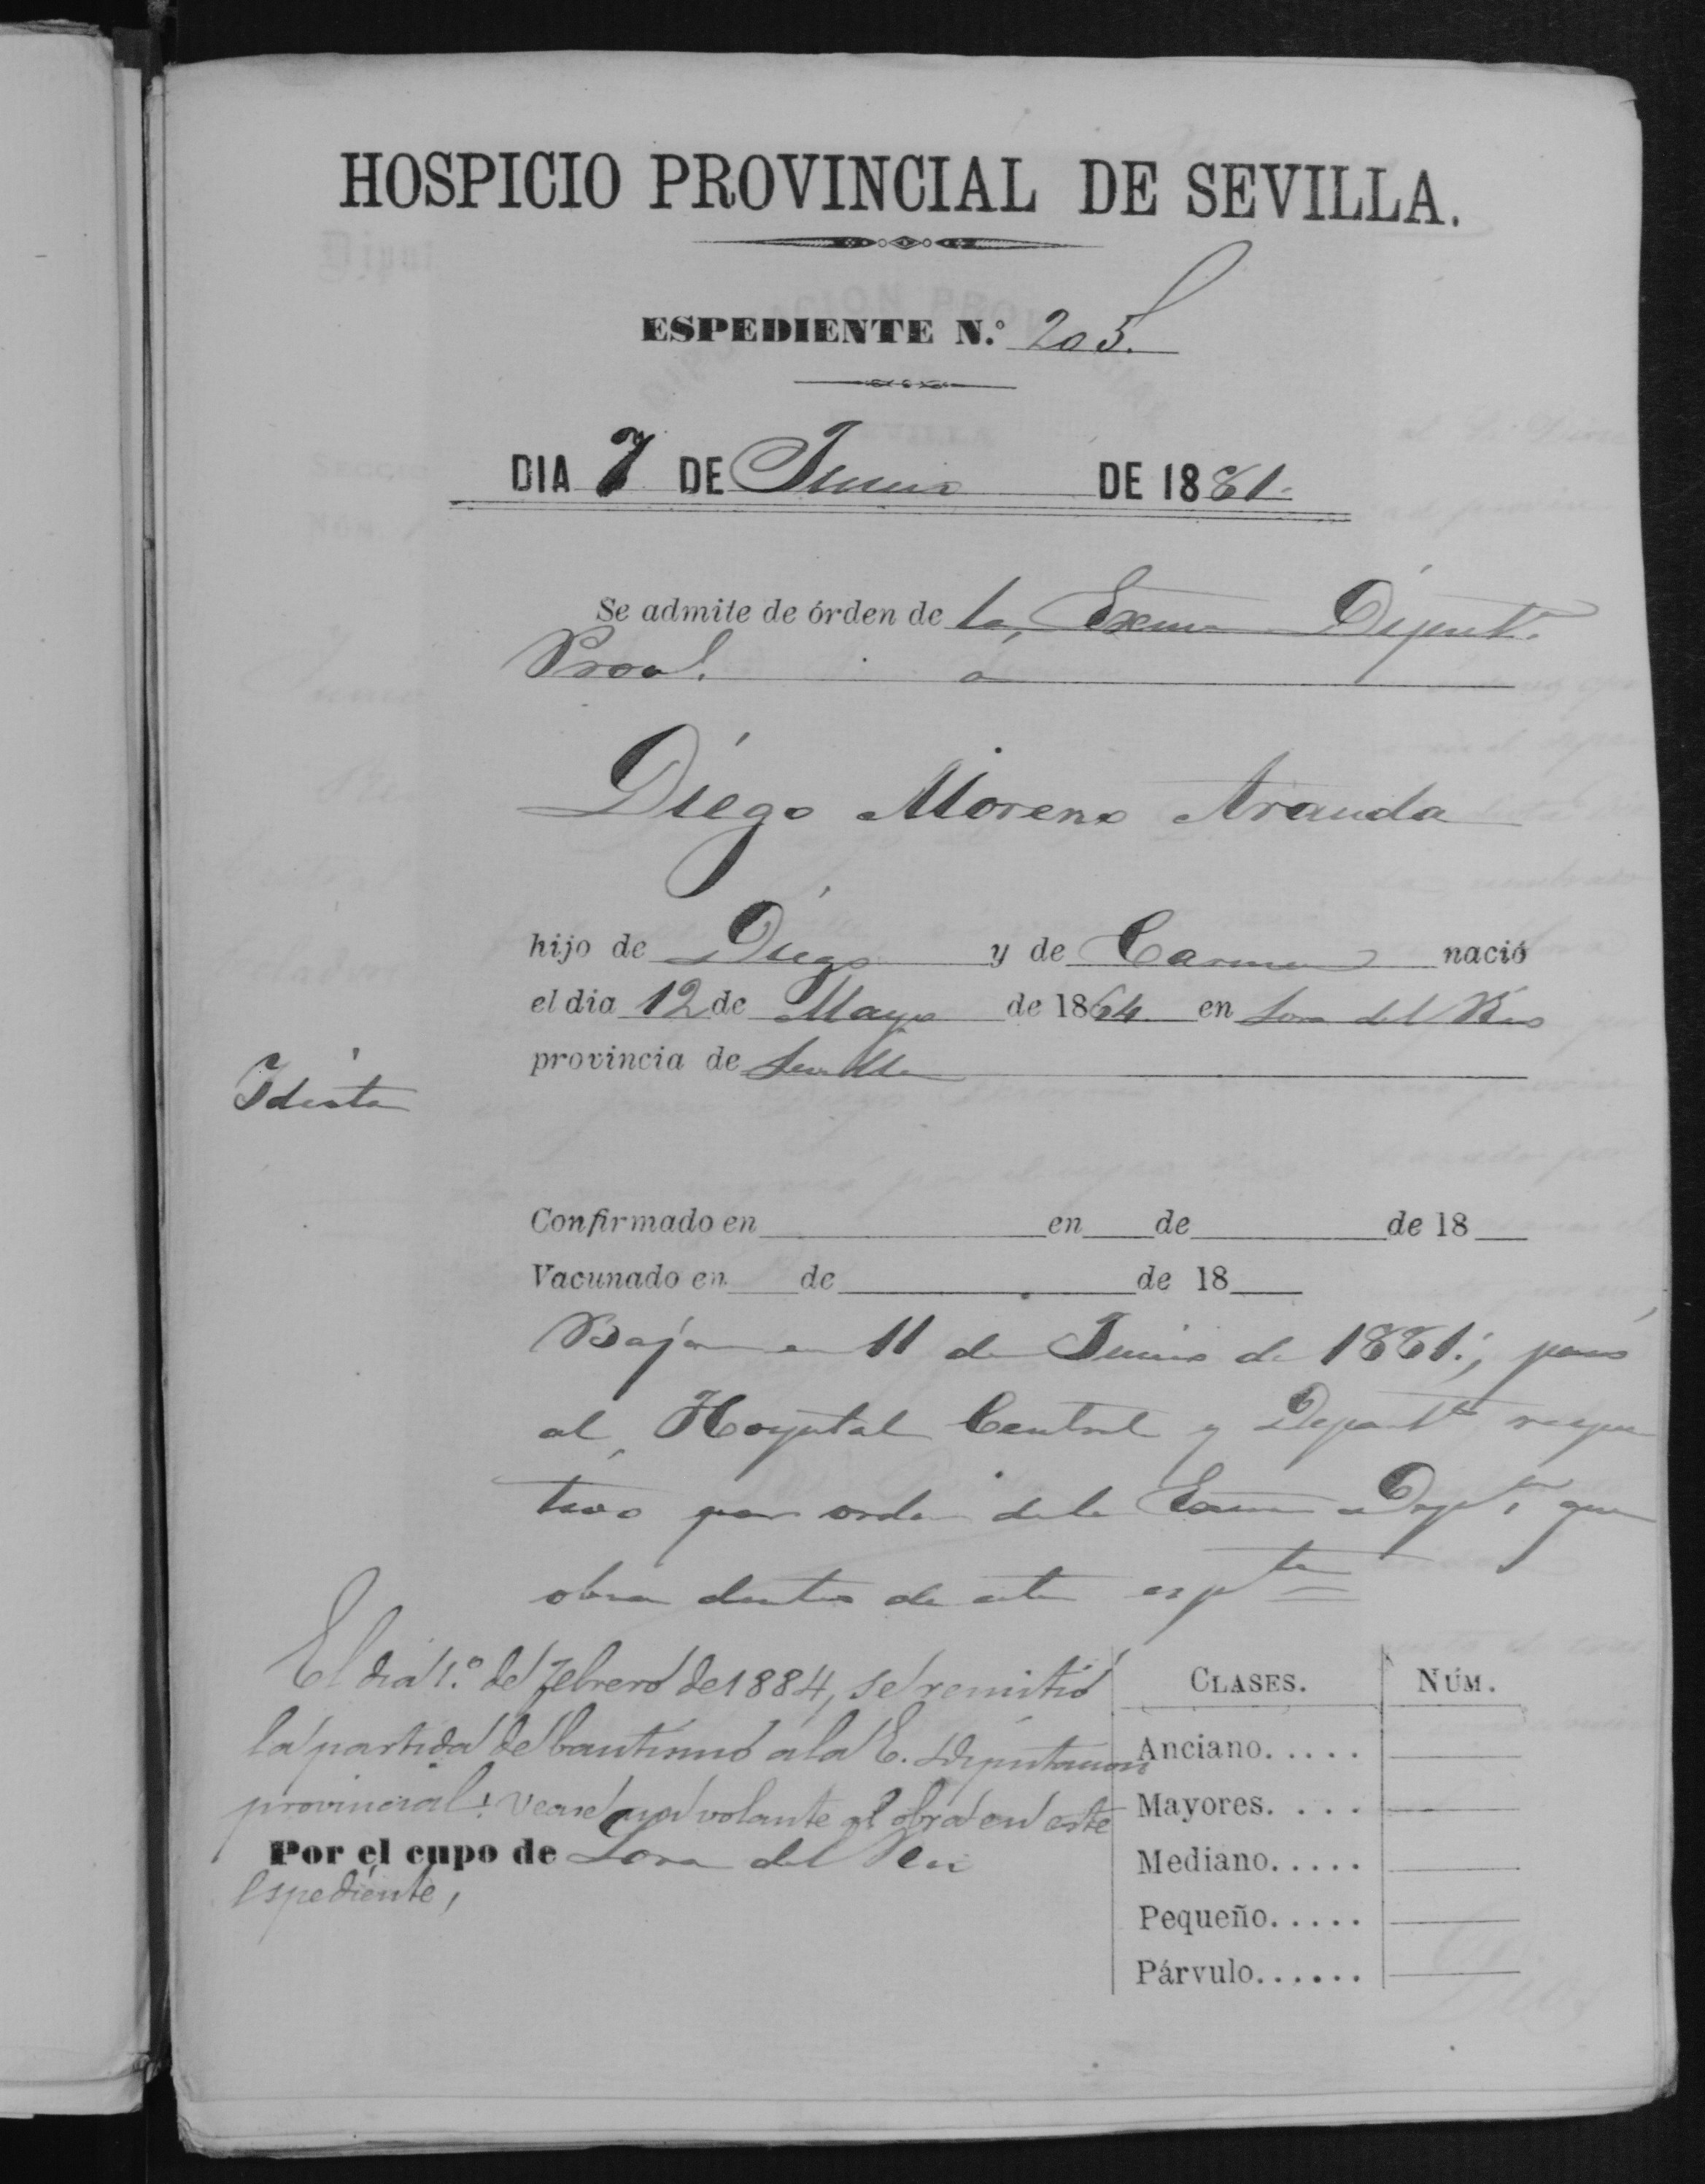 HOSPICIO PROVINCIAL DE SEVILLA.
ESPEDIENTE N.º 205.
DIA 7 DE Junio DE 1881.
Se admite de órden de la Exma Diputn.
Proal. á
Diego Moreno Aranda
hijo de Diego y de Carmen nació
el dia 12 de Mayo de 1864 en Lora del Rio
provincia de Sevilla
Idiota
Confirmado en en de de 18
Vacunado en de de 18
Baja en 11 de Junio de 1881; pasó
al Hospital Central y Departto respec
tivo por orden de la Exma Dipn que
obra dentro de este espte
El dia 1.º de Febrero de 1884, se remitió
la partida de bautismo a la E. Diputacion
provincial: vease un volante q.e obra en este
Por el cupo de Lora del Rio
espediente,
CLASES. NÚM.
Anciano.....
Mayores....
Mediano.....
Pequeño.....
Párvulo......